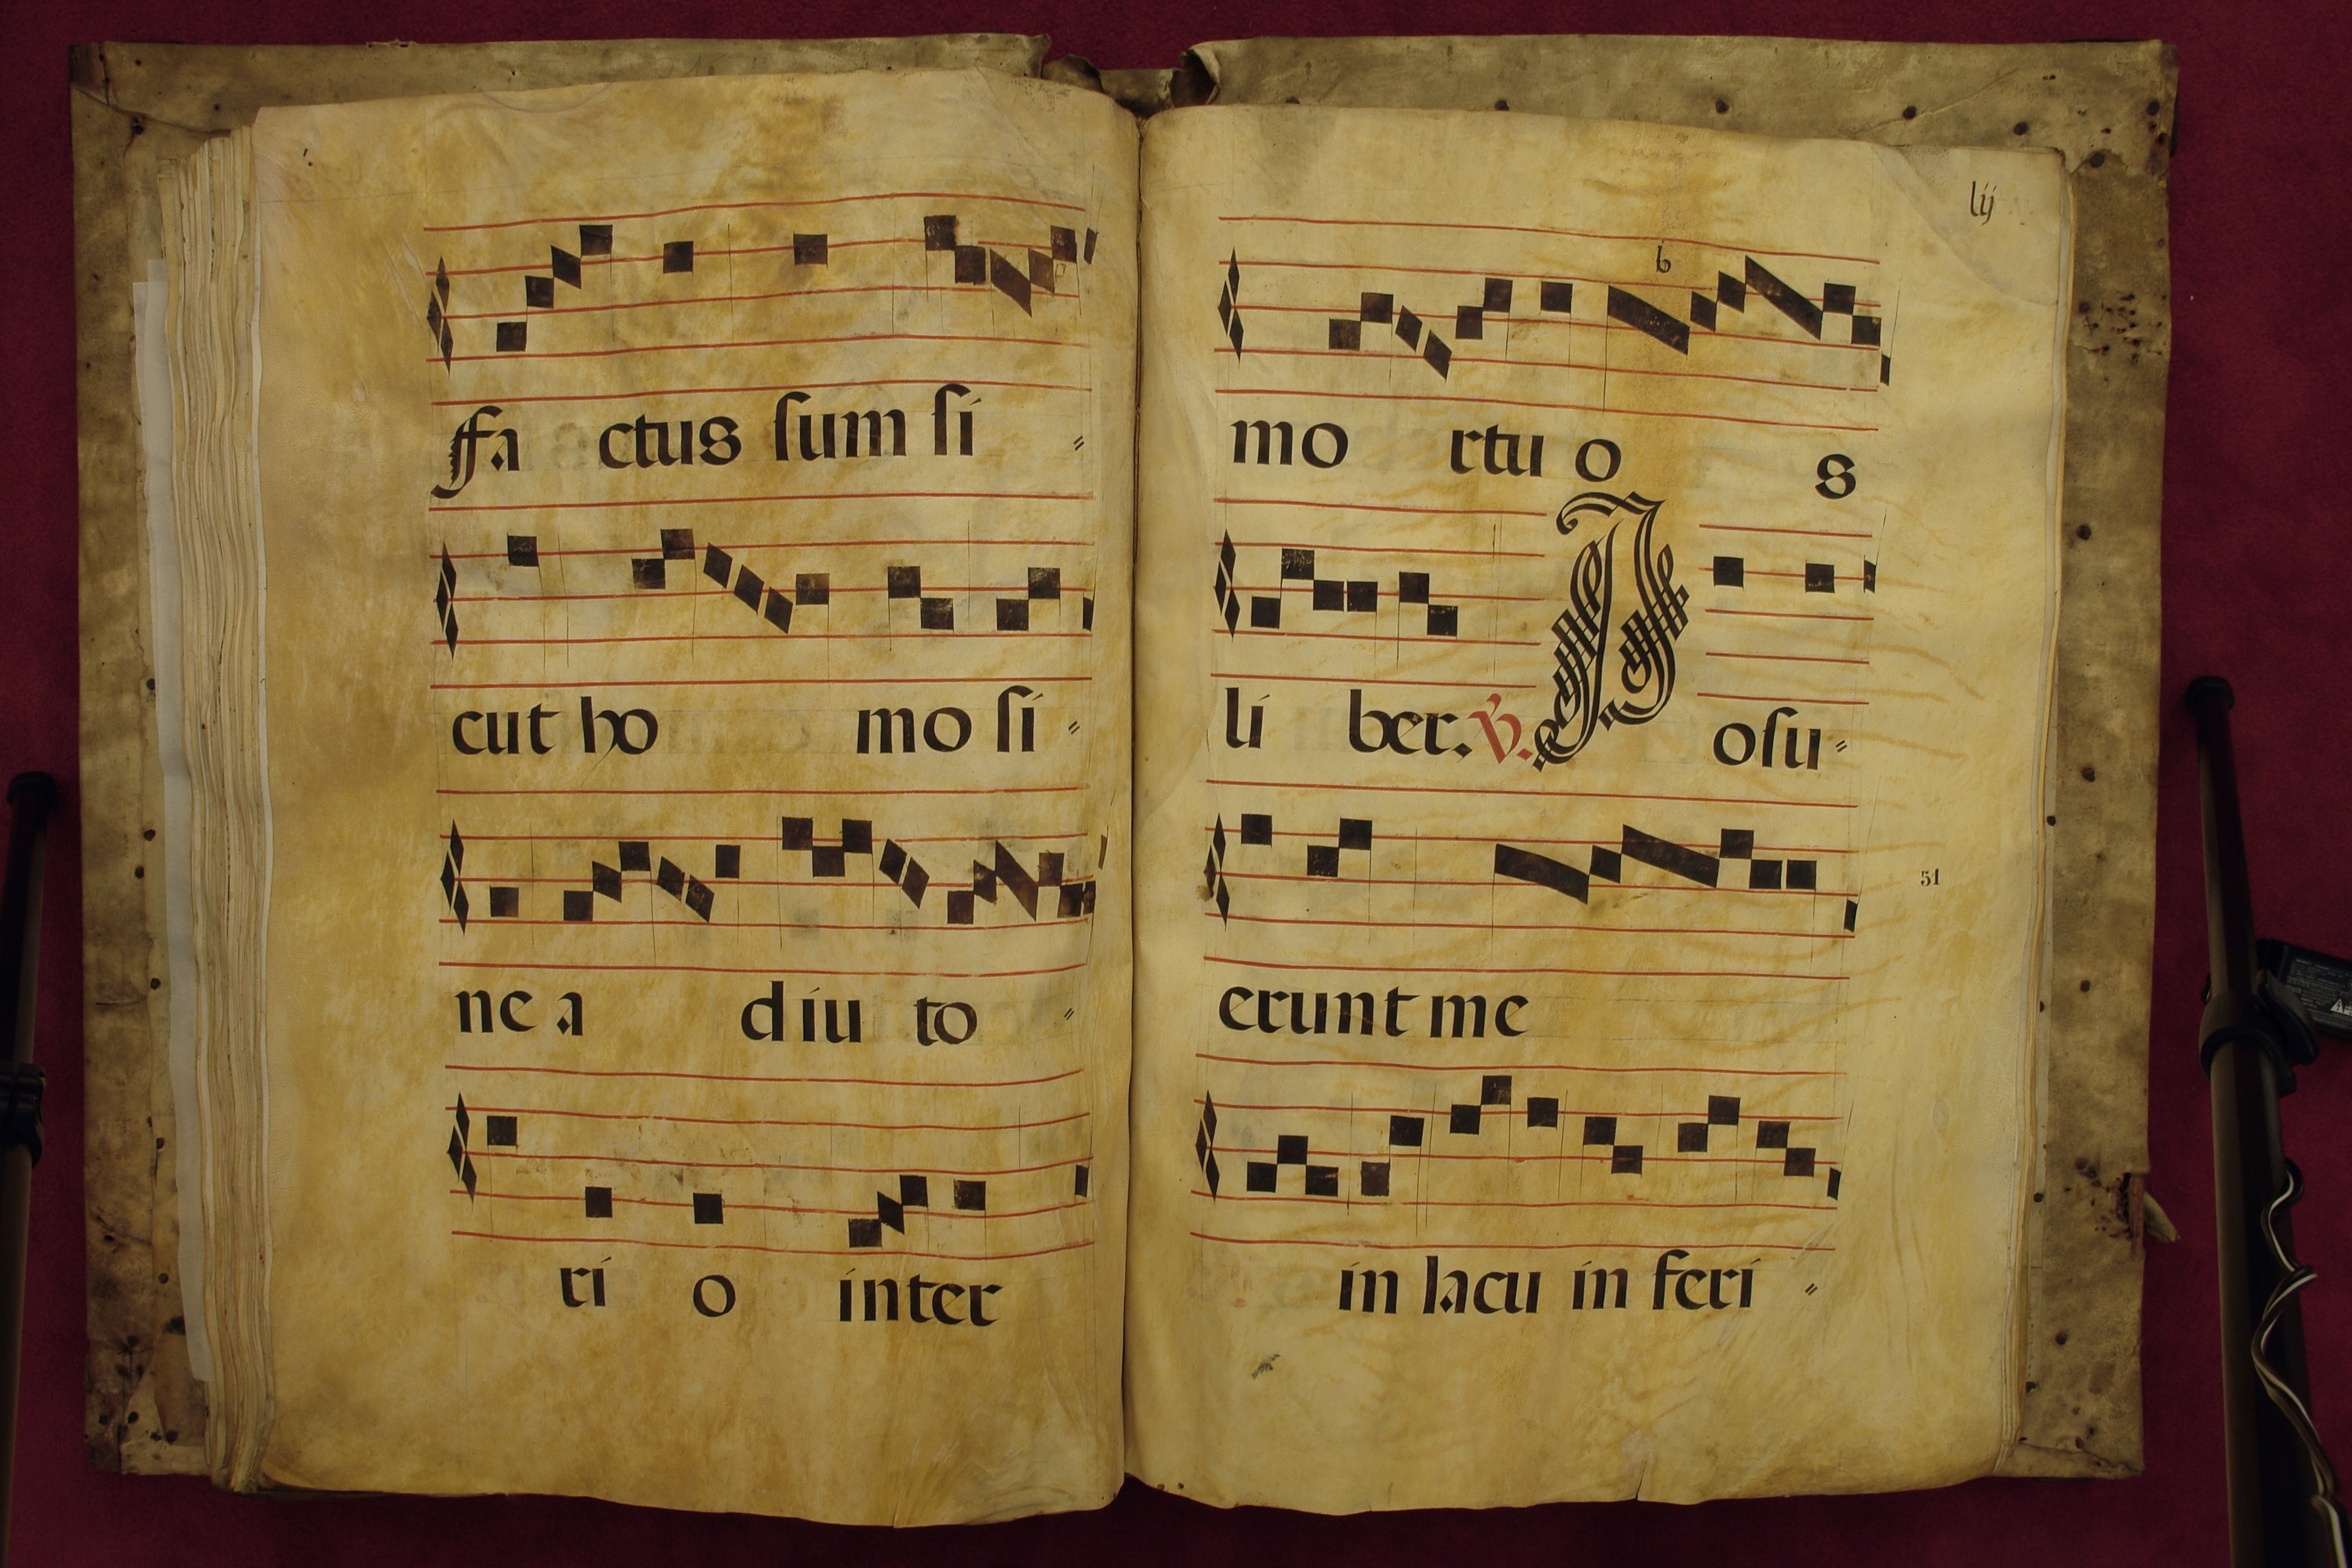 ffa ctus sum si =
cut ho mo si =
ne a diu to =
ri o inter
lij
b
mo rtu o s
li ber. ℣. P osu =
51
erunt me
in lacu in feri =